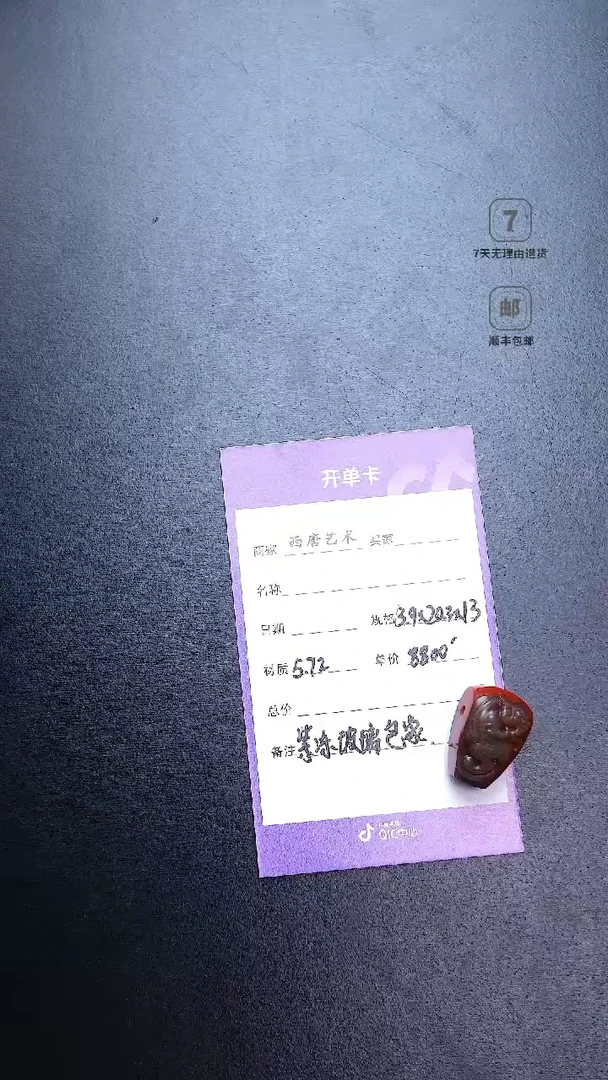 7
7天无理由退货
邮
顺丰包邮
开单卡
商家 西唐艺术 买家
名称
日期 规格 13.9x20.3x13
材质 5.72 单价 8800
总价
备注 冻玻璃包浆
QIC中心